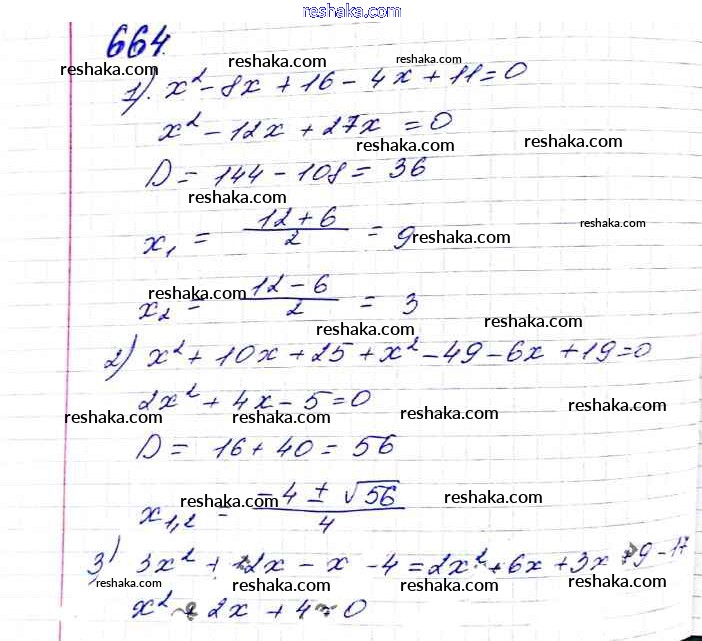 reshaka.com
664.
reshaka.com reshaka.com
1). x² - 8x + 16 - 4x + 11 = 0
x² - 12x + 27x = 0
reshaka.com
D = 144 - 108 = 36
reshaka.com
x₁ = (12 + 6)/2 = 9
reshaka.com reshaka.com
reshaka.com
x₂ = (12 - 6)/2 = 3
reshaka.com reshaka.com
2) x² + 10x + 25 + x² - 49 - 6x + 19 = 0
2x² + 4x - 5 = 0
reshaka.com reshaka.com reshaka.com reshaka.com
D = 16 + 40 = 56
x₁,₂ = (-4 ± √56)/4
reshaka.com reshaka.com
3) 3x² + 12x - x - 4 = 2x² + 6x + 3x + 9 - 17
reshaka.com reshaka.com reshaka.com
x² + 2x + 4 = 0